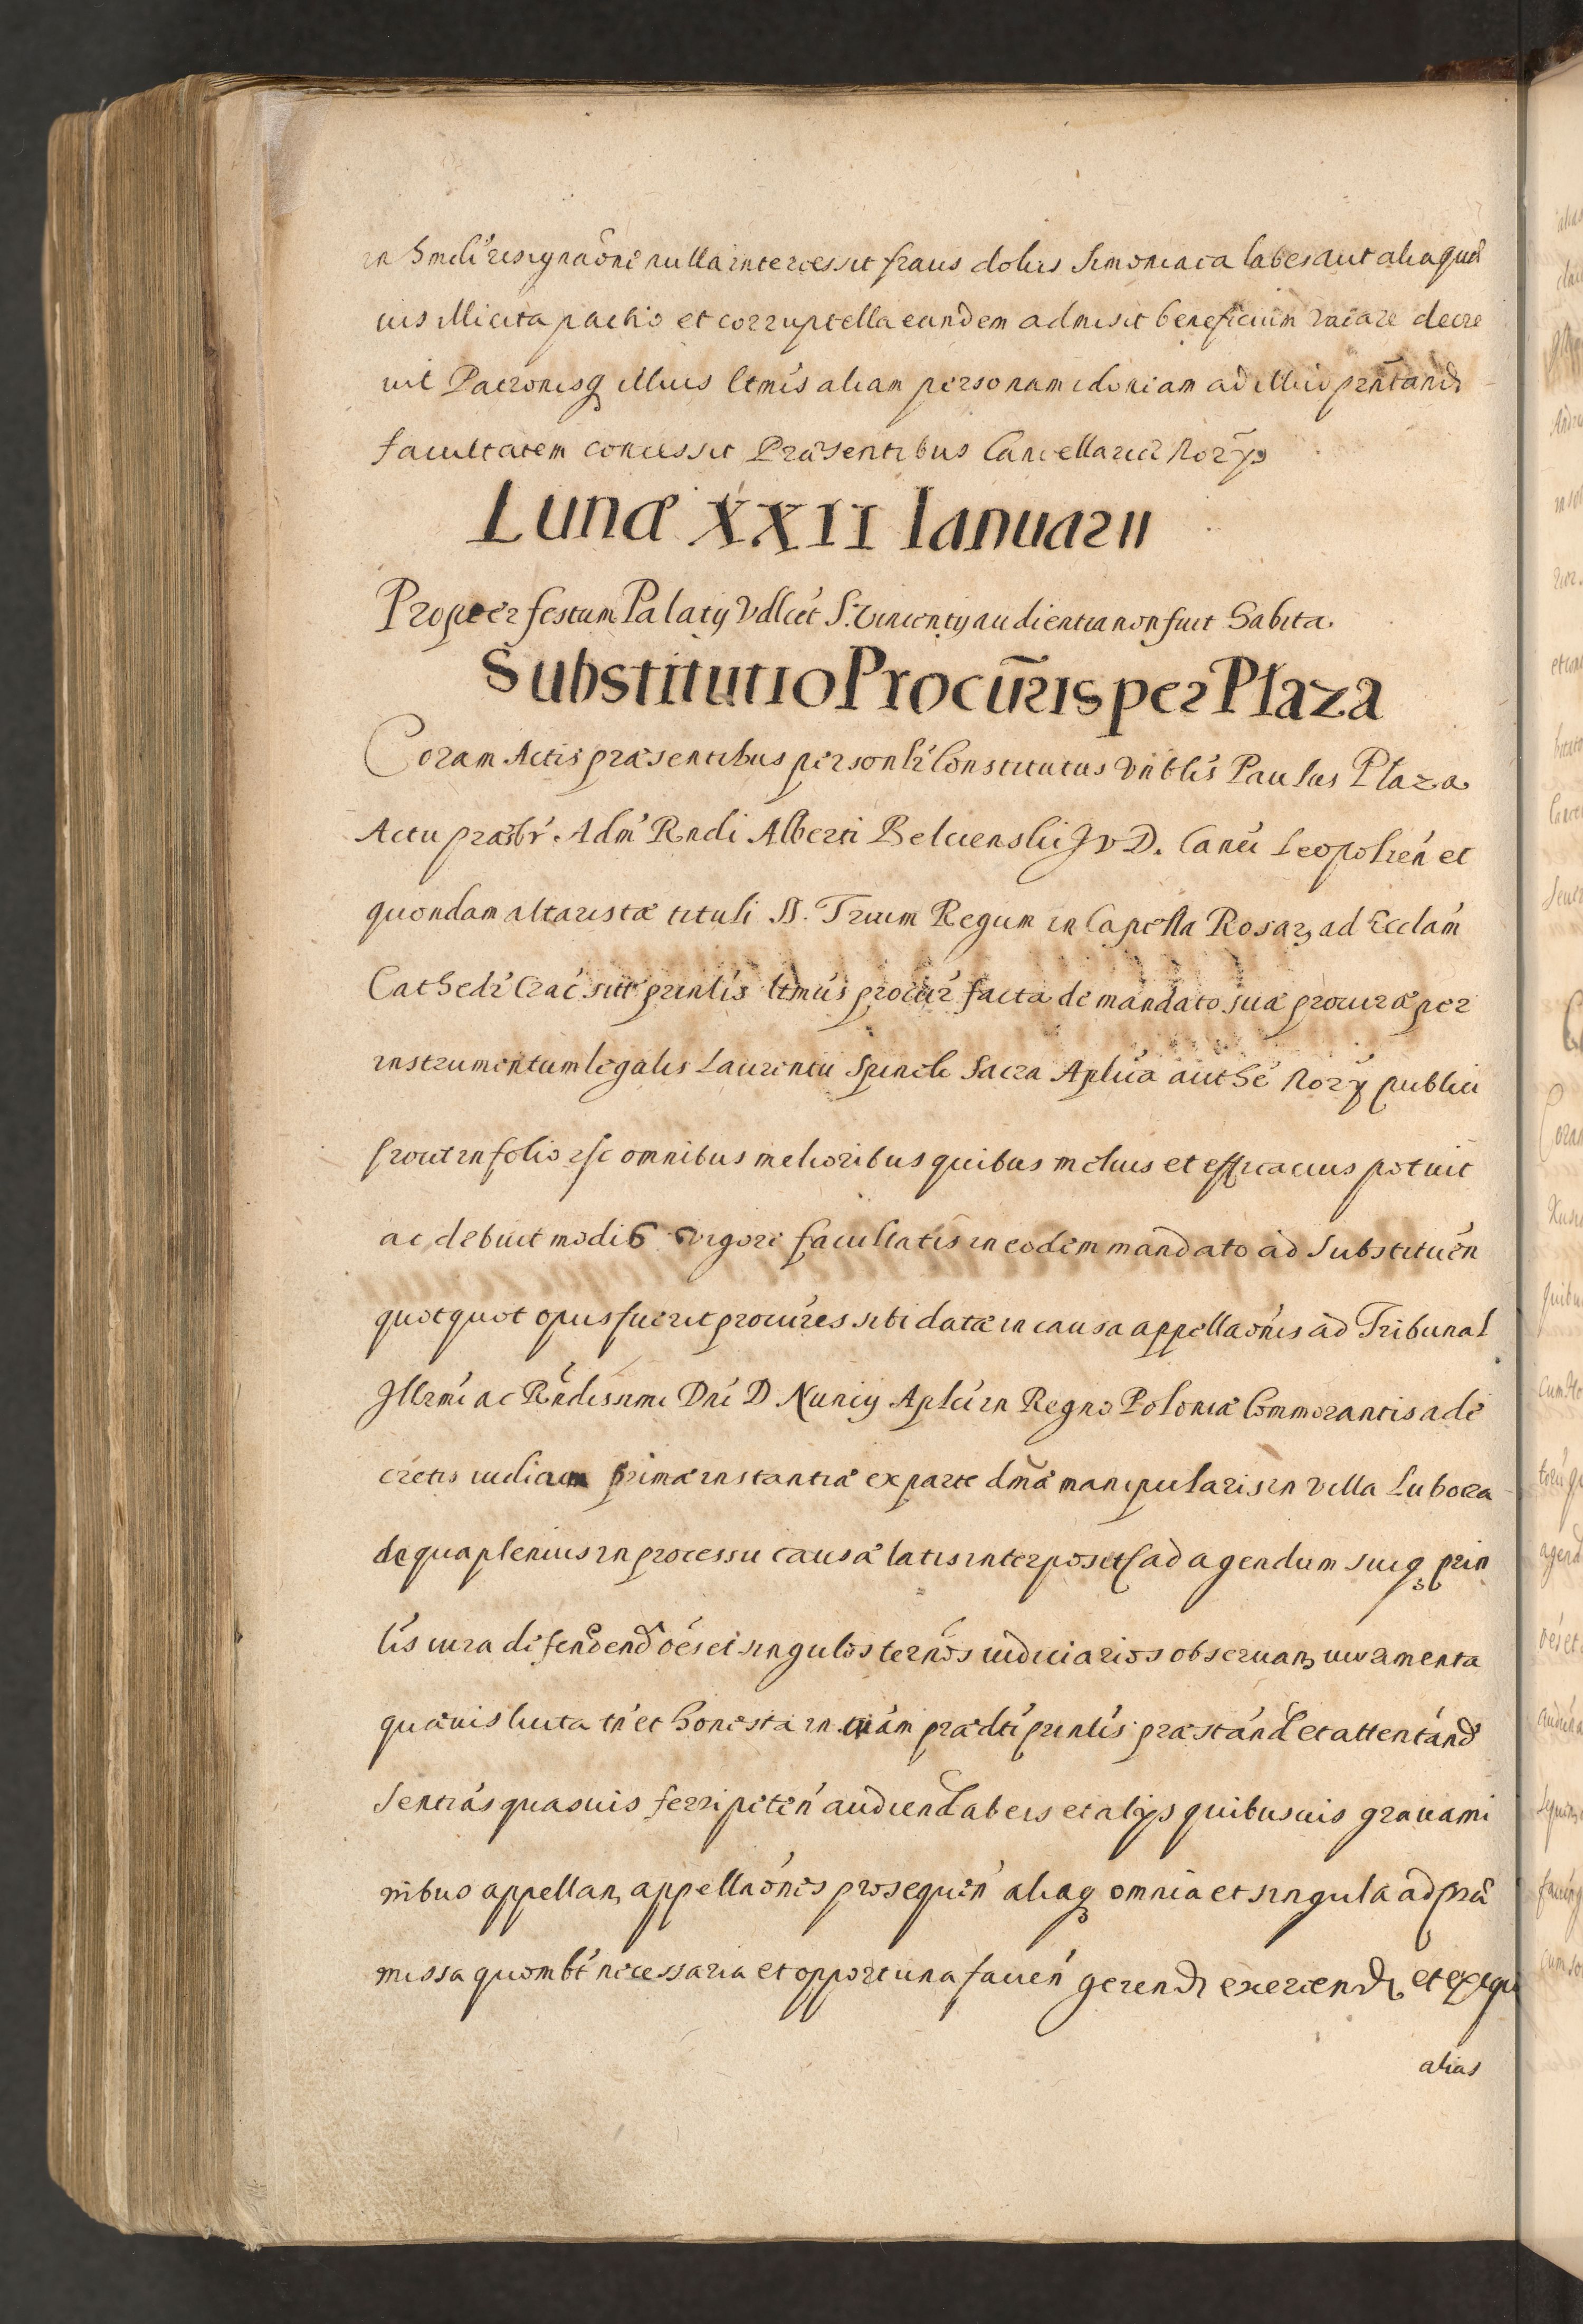 in hmdi resignaõne nulla intercessit fraus dolus simoniaca labes aut alia quæ
vis illicita pactio et corruptella eandem admisit beneficium vacare decre
vit Patronisq illius ltmis aliam personam idoneam ad illud pñtand
facultatem concessit Præsentibus Cancellariæ Norijs
Lunæ XXII Ianuarii
Propter festum Palatij Vdlict S. Vincentij audientia non fuit habita
Substitutio Procuris per Plaza
Coram Actis præsentibus personlr Constitutus Vnblis Paulus Plaza
Actu præsbr Adm Rndi Alberti Belcienskij J V D. Canci Leopolien et
quondam altaristæ tituli SS. Trium Regum in Capella Rosar ad Ecclam
Cathedr Crac sui prinlis ltmus procur facta de mandato suæ procuræ per
instrumentum legalis Laurentii Sacra Aplica authe Norij publici
prout in folio est omnibus melioribus quibus melius et efficacius potuit
ac debuit modis vigore facultatis in eodem mandato ad substituen
quotquot opus fuerit procures sibi datæ in causa appellaonis ad Tribunal
Illrmi ac Rndissimi Dni D Nuncij Aplci in Regno Poloniæ Commorantis a de
cretis iudicum primæ instantiæ ex parte dmæ manipularis in Villa Luboca
de qua plenius in processu causæ latis interposit ad agendum suiq prin
lis iura defendend oes et singulos ternos iudiciarios observan iuramenta
quævis licita tn et honesta in aiam prædti prinlis præstand et attentand
Sentias quasvis ferri peten audiend ab eis et alijs quibusvis gravami
nibus appellan appellaones prosequen aliaq omnia et singula ad præ
missa quomlbt necessaria et opportuna facien gerend exercend et exequ
alias